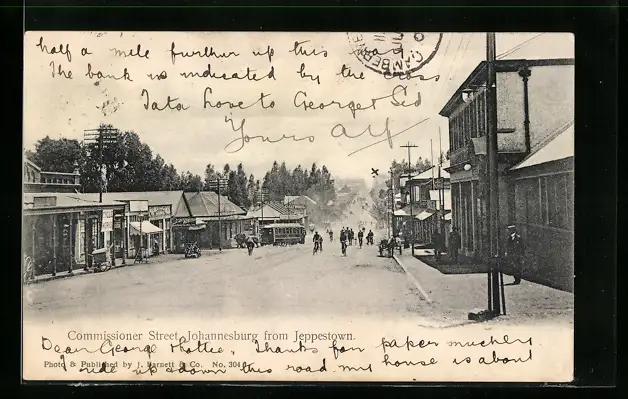 half a mile further up this way
The bank is indicated by the cross
Tata Love to George & Sid
Yours Alf
CAMBERWELL
x
Commissioner Street, Johannesburg from Jeppestown.
Dear George & Lottie, Thanks for paper muchly
Photo & Published by J. Barnett & Co. No. 304
ride up & down this road my house is about